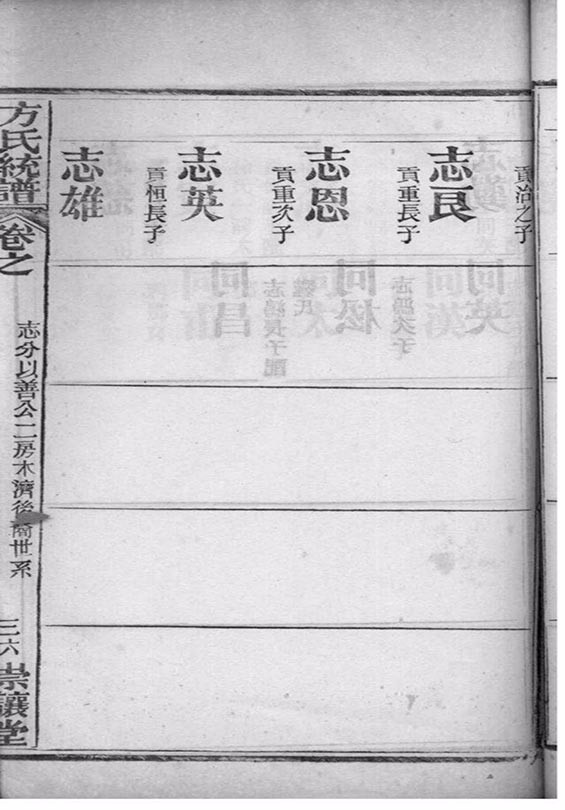 貢治之子
志良
貢重長子
志恩
貢重次子
志英
貢恒長子
志雄
方氏統譜
卷之
志分以善公二房木濟後裔世系
三六
崇讓堂